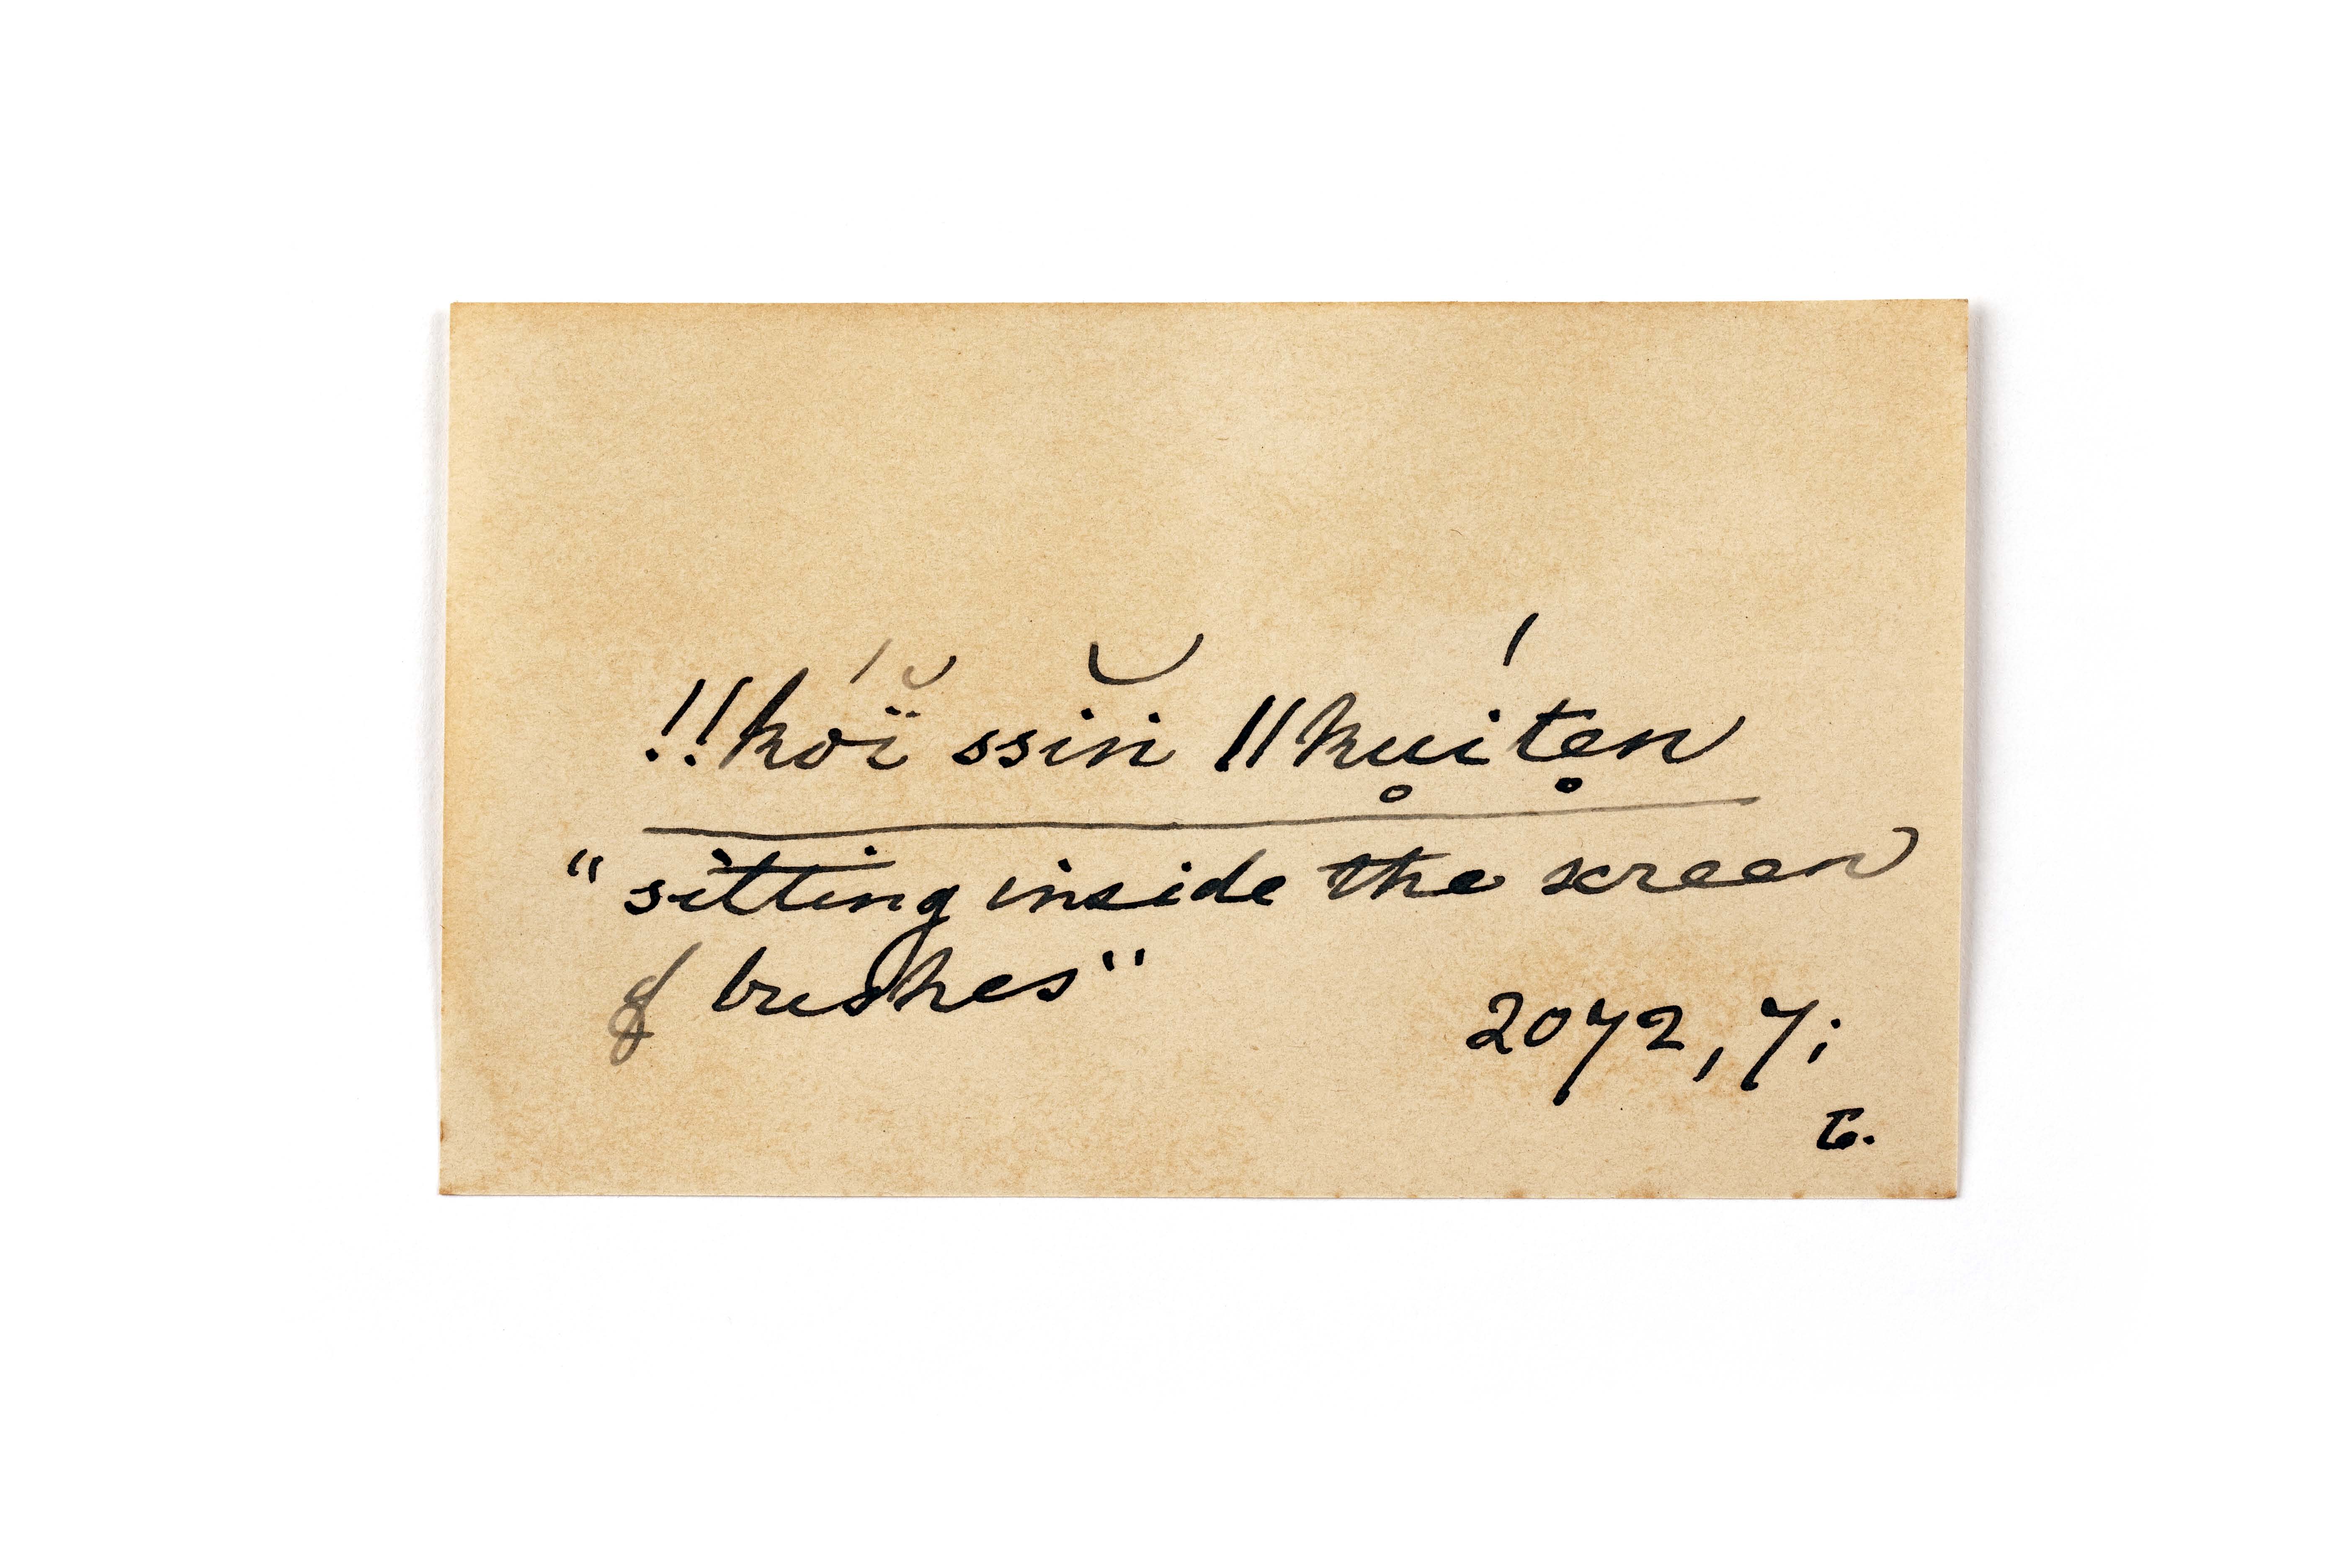 !!kóï̆ ssĭn ǁku̥íte̥n
“sitting inside the screen
of bushes”
2072, 7;
G.